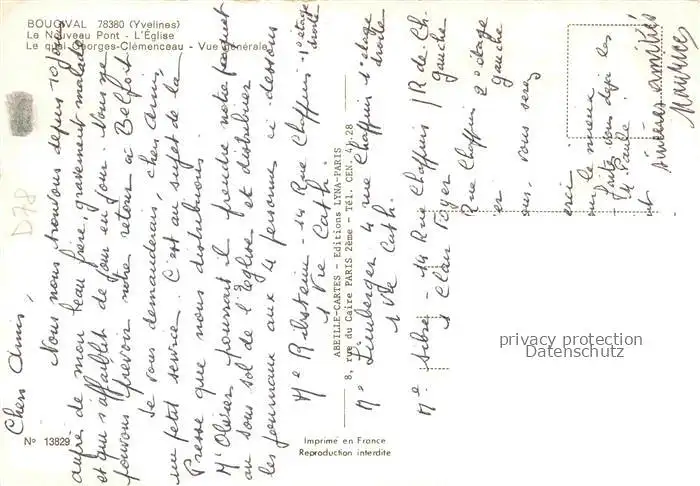 BOUGIVAL 78380 (Yvelines)
Le Nouveau Pont - L'Église
Le quai Georges-Clémenceau - Vue générale
Nº 13829
D78
ABEILLE-CARTES - Editions LYNA-PARIS
8, rue du Caire PARIS 2ème - Tél. CEN. 41.28
Imprimé en France
Reproduction interdite
privacy protection
Datenschutz
Chers Amis,
Nous nous trouvons depuis 10 jours
auprès de mon beau frère, gravement malade
et qui s'affaiblit de jour en jour. Nous ne
pouvons prévoir notre retour à Belfort
Je vous demanderais, cher Amis,
un petit service. C'est au sujet de la
Presse que nous distribuons.
Mr Olivier pourrait il prendre notre paquet
au sous sol de l'Église et distribuer
les journaux aux 4 personnes ci dessous
Me Ribstein - 14 Rue Chaffins - 1º étage droite
1 Vie Cath.
Me 4 rue Chaffins 1º étage droite
1 Vie Cath.
Me 14 Rue Chaffins / R. de Ch. gauche
1 Clair Foyer
Rue Chaffins 2º étage gauche
vous serez
erci
le mieux
vous dépl les
Sincères amitiés
Maurice